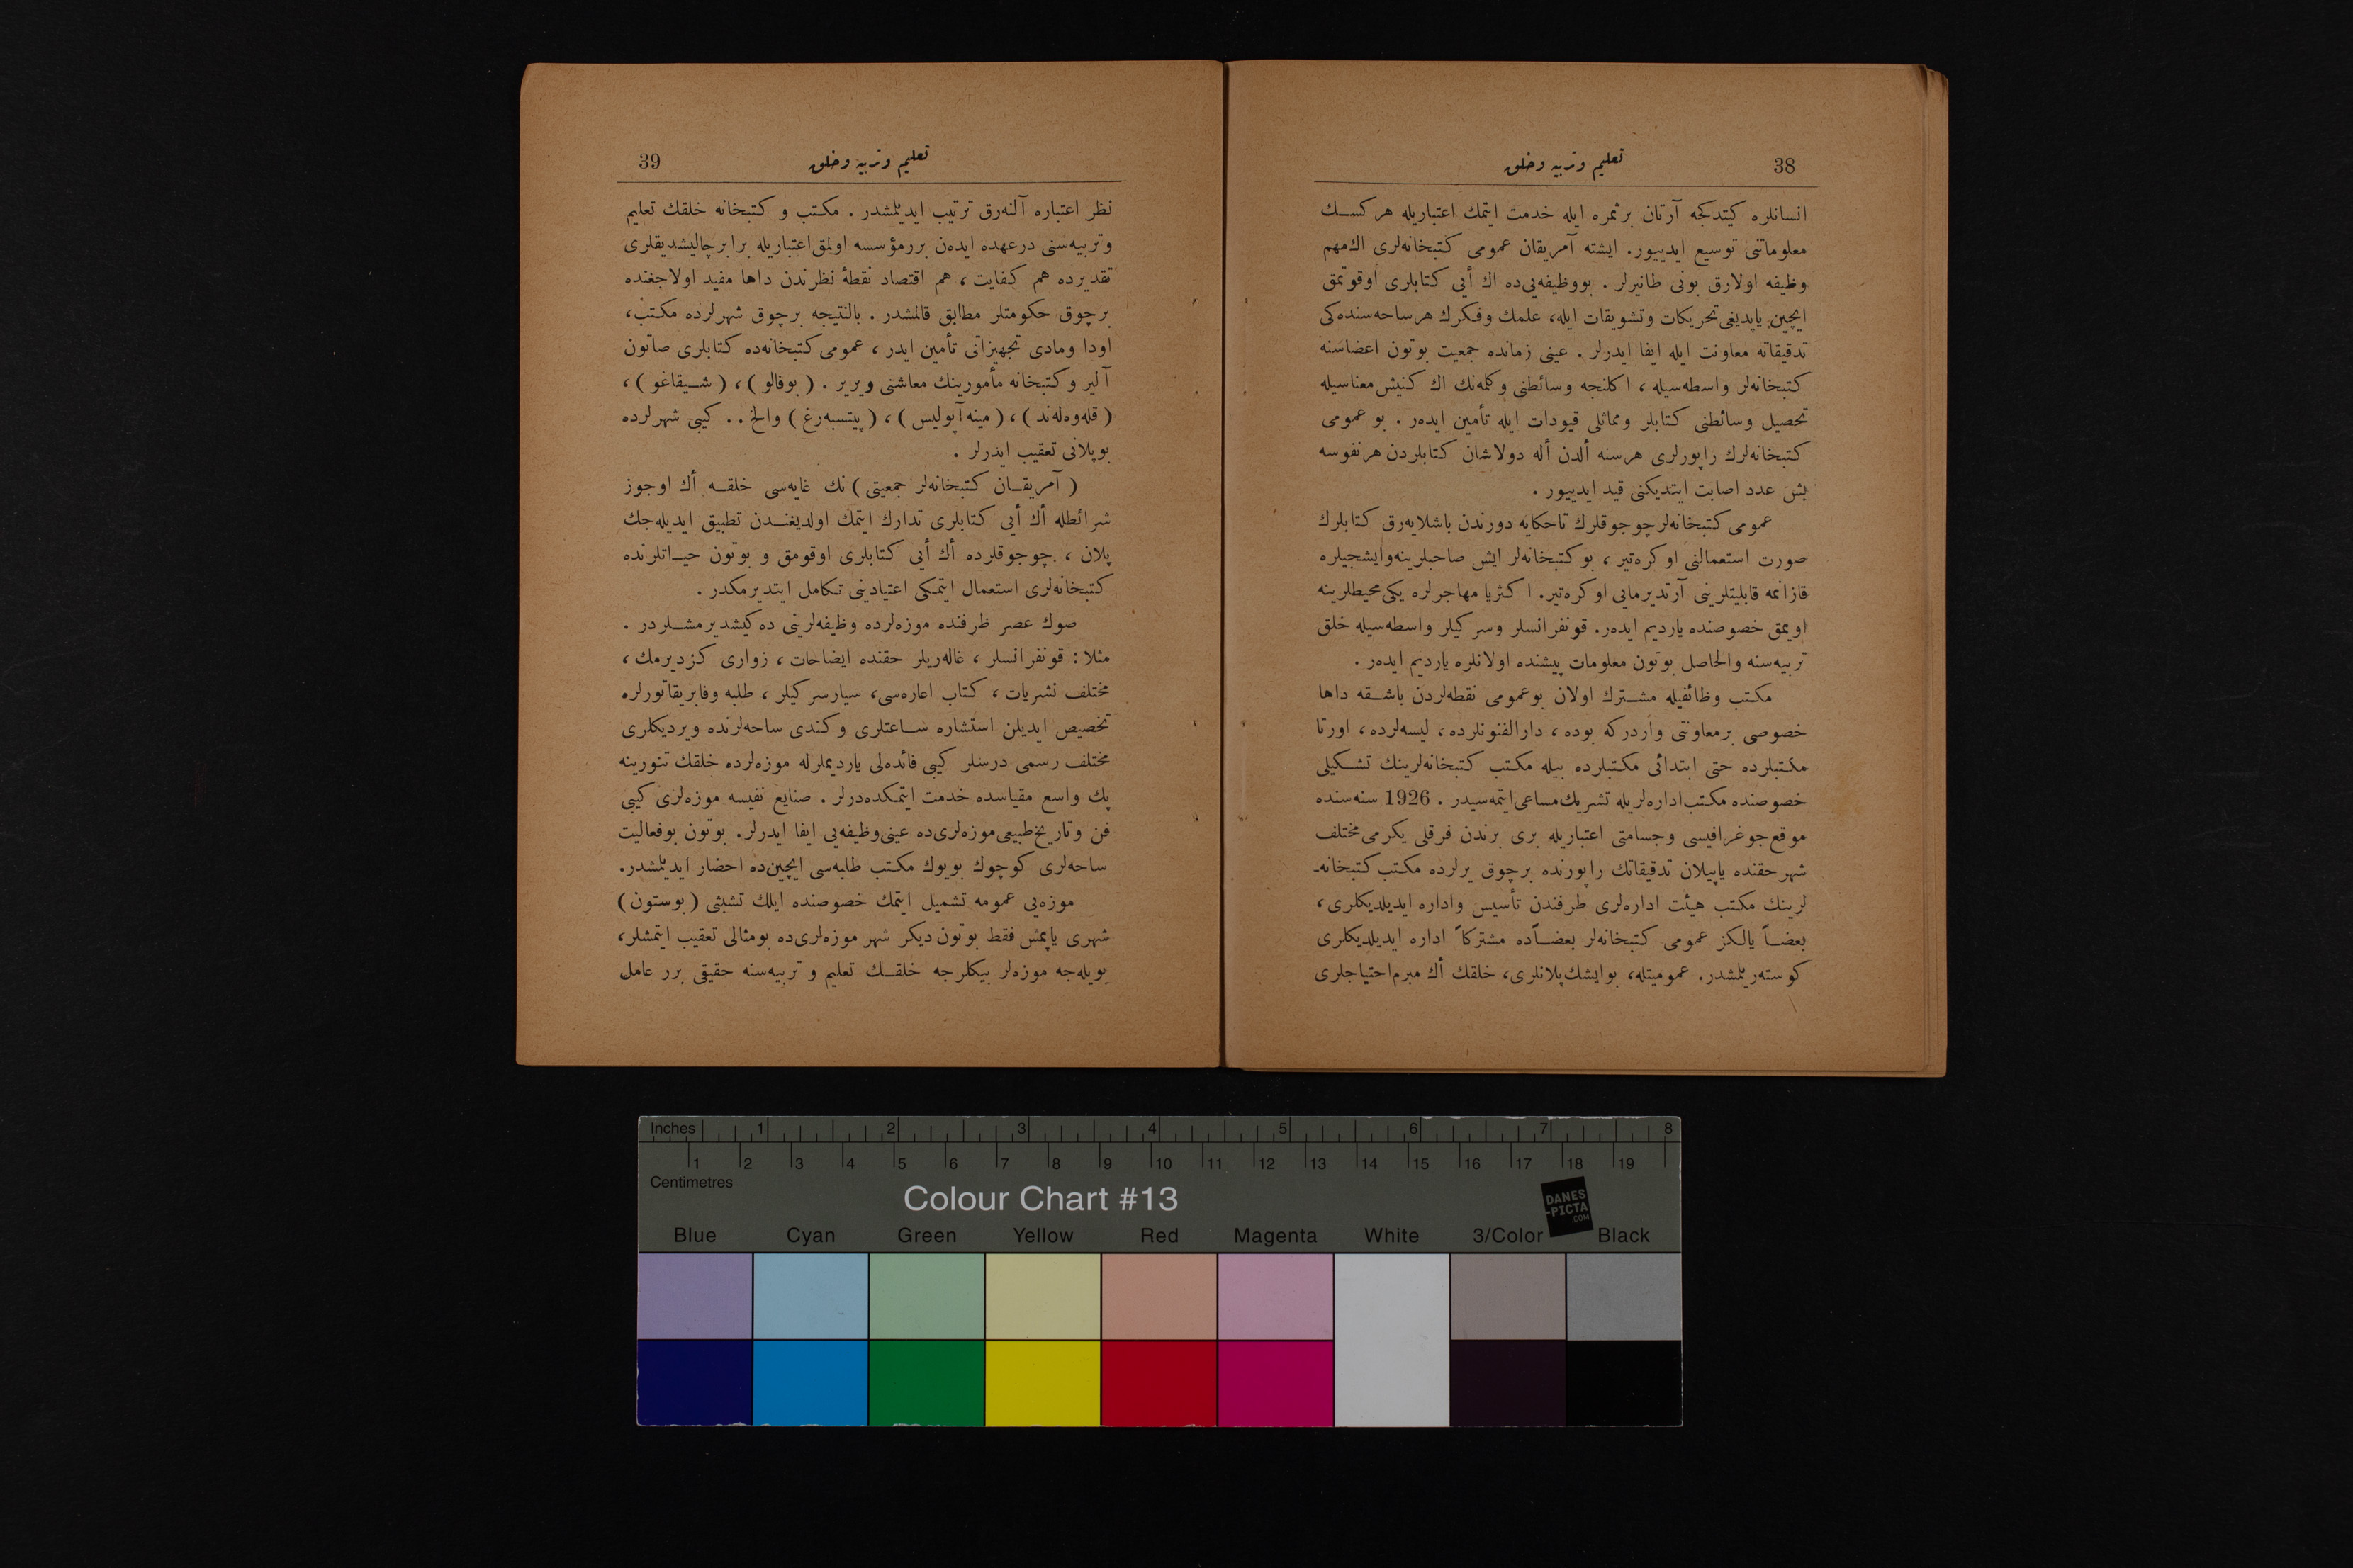 38
تعليم وتربيه وخلق
انسانلره كيتدكجه آرتان برثمره ايله خدمت ايتمك اعتباريله هركسك
معلوماتنى توسيع ايدييور. ايشته آمريقان عمومى كتبخانه‌لرى اك مهم
وظيفه اولارق بونى طانيرلر . بووظيفه‌يى‌ده اك أيى كتابلرى اوقوتمق
ايچين ياپديغى تحريكات وتشويقات ايله، علمك وفكرك هرساحه‌سنده‌كى
تدقيقاته معاونت ايله ايفا ايدرلر . عينى زمانده جمعيت بوتون اعضاسنه
كتبخانه‌لر واسطه‌سيله ، اكلنجه وسائطنى وكلمه‌نك اك كنيش معناسيله
تحصيل وسائطنى كتابلر ومماثلى قيودات ايله تأمين ايده‌ر . بو عمومى
كتبخانه‌لرك راپورلرى هرسنه ألدن أله دولاشان كتابلردن هرنفوسه
بش عدد اصابت ايتديكنى قيد ايدييور .
عمومى كتبخانه‌لر چوجوقلرك تاحكايه دورندن باشلايه‌رق كتابلرك
صورت استعمالنى اوكره‌تير ، بوكتبخانه‌لر ايش صاحبلرينه‌وايشجيلره
قازانمه قابليتلرينى آرتديرمايى اوكره‌تير. اكثريا مهاجرلره يكى محيطلرينه
اويمق خصوصنده يارديم ايده‌ر. قونفرانسلر وسركيلر واسطه‌سيله خلق
تربيه‌سنه والحاصل بوتون معلومات پيشنده اولانلره يارديم ايده‌ر .
مكتب وظائفيله مشترك اولان بوعمومى نقطه‌لردن باشقه داها
خصوصى برمعاونتى واردركه بوده ، دارالفنونلرده ، ليسه‌لرده ، اورتا
مكتبلرده حتى ابتدائى مكتبلرده بيله مكتب كتبخانه‌لرينك تشكيلى
خصوصنده مكتب‌اداره‌لريله تشريك‌مساعى‌ايتمه‌سيدر . 1926 سنه‌سنده
موقع جوغرافيسى وجسامتى اعتباريله برى برندن فرقلى يكرمى مختلف
شهر حقنده ياپيلان تدقيقاتك راپورنده برچوق يرلرده مكتب كتبخانه‌ـ
لرينك مكتب هيئت اداره‌لرى طرفندن تأسيس واداره ايديلديكلرى ،
بعضاً يالكز عمومى كتبخانه‌لر بعضاًده مشتركاً اداره ايديلديكلرى
كوسته‌ريلمشدر. عموميتله، بوايشك‌پلانلرى، خلقك أك مبرم‌احتياجلرى
39
تعليم وتربيه وخلق
نظر اعتباره آلنه‌رق ترتيب ايديلمشدر . مكتب و كتبخانه خلقك تعليم
وتربيه‌سنى درعهده ايده‌ن بررمؤسسه اولمق‌اعتباريله برابرچاليشديقلرى
تقديرده هم كفايت ، هم اقتصاد نقطهٔ نظرندن داها مفيد اولاجغنده
برچوق حكومتلر مطابق قالمشدر . بالنتيجه برچوق شهرلرده مكتب،
اودا ومادى تجهيزاتى تأمين ايدر ، عمومى كتبخانه‌ده كتابلرى صاتون
آلير وكتبخانه مأمورينك معاشنى ويرير . ( بوفالو ) ، ( شيقاغو ) ،
( قله‌وه‌له‌ند ) ، ( مينه‌آپوليس ) ، ( پيتسبه‌رغ ) والخ . . كيبى شهرلرده
بوپلانى تعقيب ايدرلر .
( آمريقان كتبخانه‌لر جمعيتى ) نك غايه‌سى خلقه أك اوجوز
شرائطله أك أيى كتابلرى تدارك ايتمك اولديغندن تطبيق ايديله‌جك
پلان ، چوجوقلرده أك أيى كتابلرى اوقومق و بوتون حياتلرنده
كتبخانه‌لرى استعمال ايتمكى اعتيادينى تكامل ايتديرمكدر .
صوك عصر ظرفنده موزه‌لرده وظيفه‌لرينى ده‌كيشديرمشلردر .
مثلا : قونفرانسلر ، غاله‌ريلر حقنده ايضاحات ، زوارى كزديرمك ،
مختلف نشريات ، كتاب اعاره‌سى، سيارسركيلر ، طلبه وفابريقاتورلره
تخصيص ايديلن استشاره ساعتلرى وكندى ساحه‌لرنده ويرديكلرى
مختلف رسمى درسلر كيبى فائده‌لى يارديملرله موزه‌لرده خلقك تنويرينه
پك واسع مقياسده خدمت ايتمكده‌درلر . صنايع نفيسه موزه‌لرى كيبى
فن وتاريخ‌طبيعى‌موزه‌لرى‌ده عينى‌وظيفه‌يى ايفا ايدرلر. بوتون بوفعاليت
ساحه‌لرى كوچوك بويوك مكتب طلبه‌سى ايچين‌ده احضار ايديلمشدر.
موزه‌يى عمومه تشميل ايتمك خصوصنده ايلك تشبثى ( بوستون )
شهرى ياپمش فقط بوتون ديكر شهر موزه‌لرى‌ده بومثالى تعقيب ايتمشلر،
بويله‌جه موزه‌لر بيكلرجه خلقك تعليم و تربيه‌سنه حقيقى برر عامل
Inches 1 2 3 4 5 6 7 8
1 2 3 4 5 6 7 8 9 10 11 12 13 14 15 16 17 18 19
Centimetres
Colour Chart #13
DANES
-PICTA
.COM
Blue Cyan Green Yellow Red Magenta White 3/Color Black